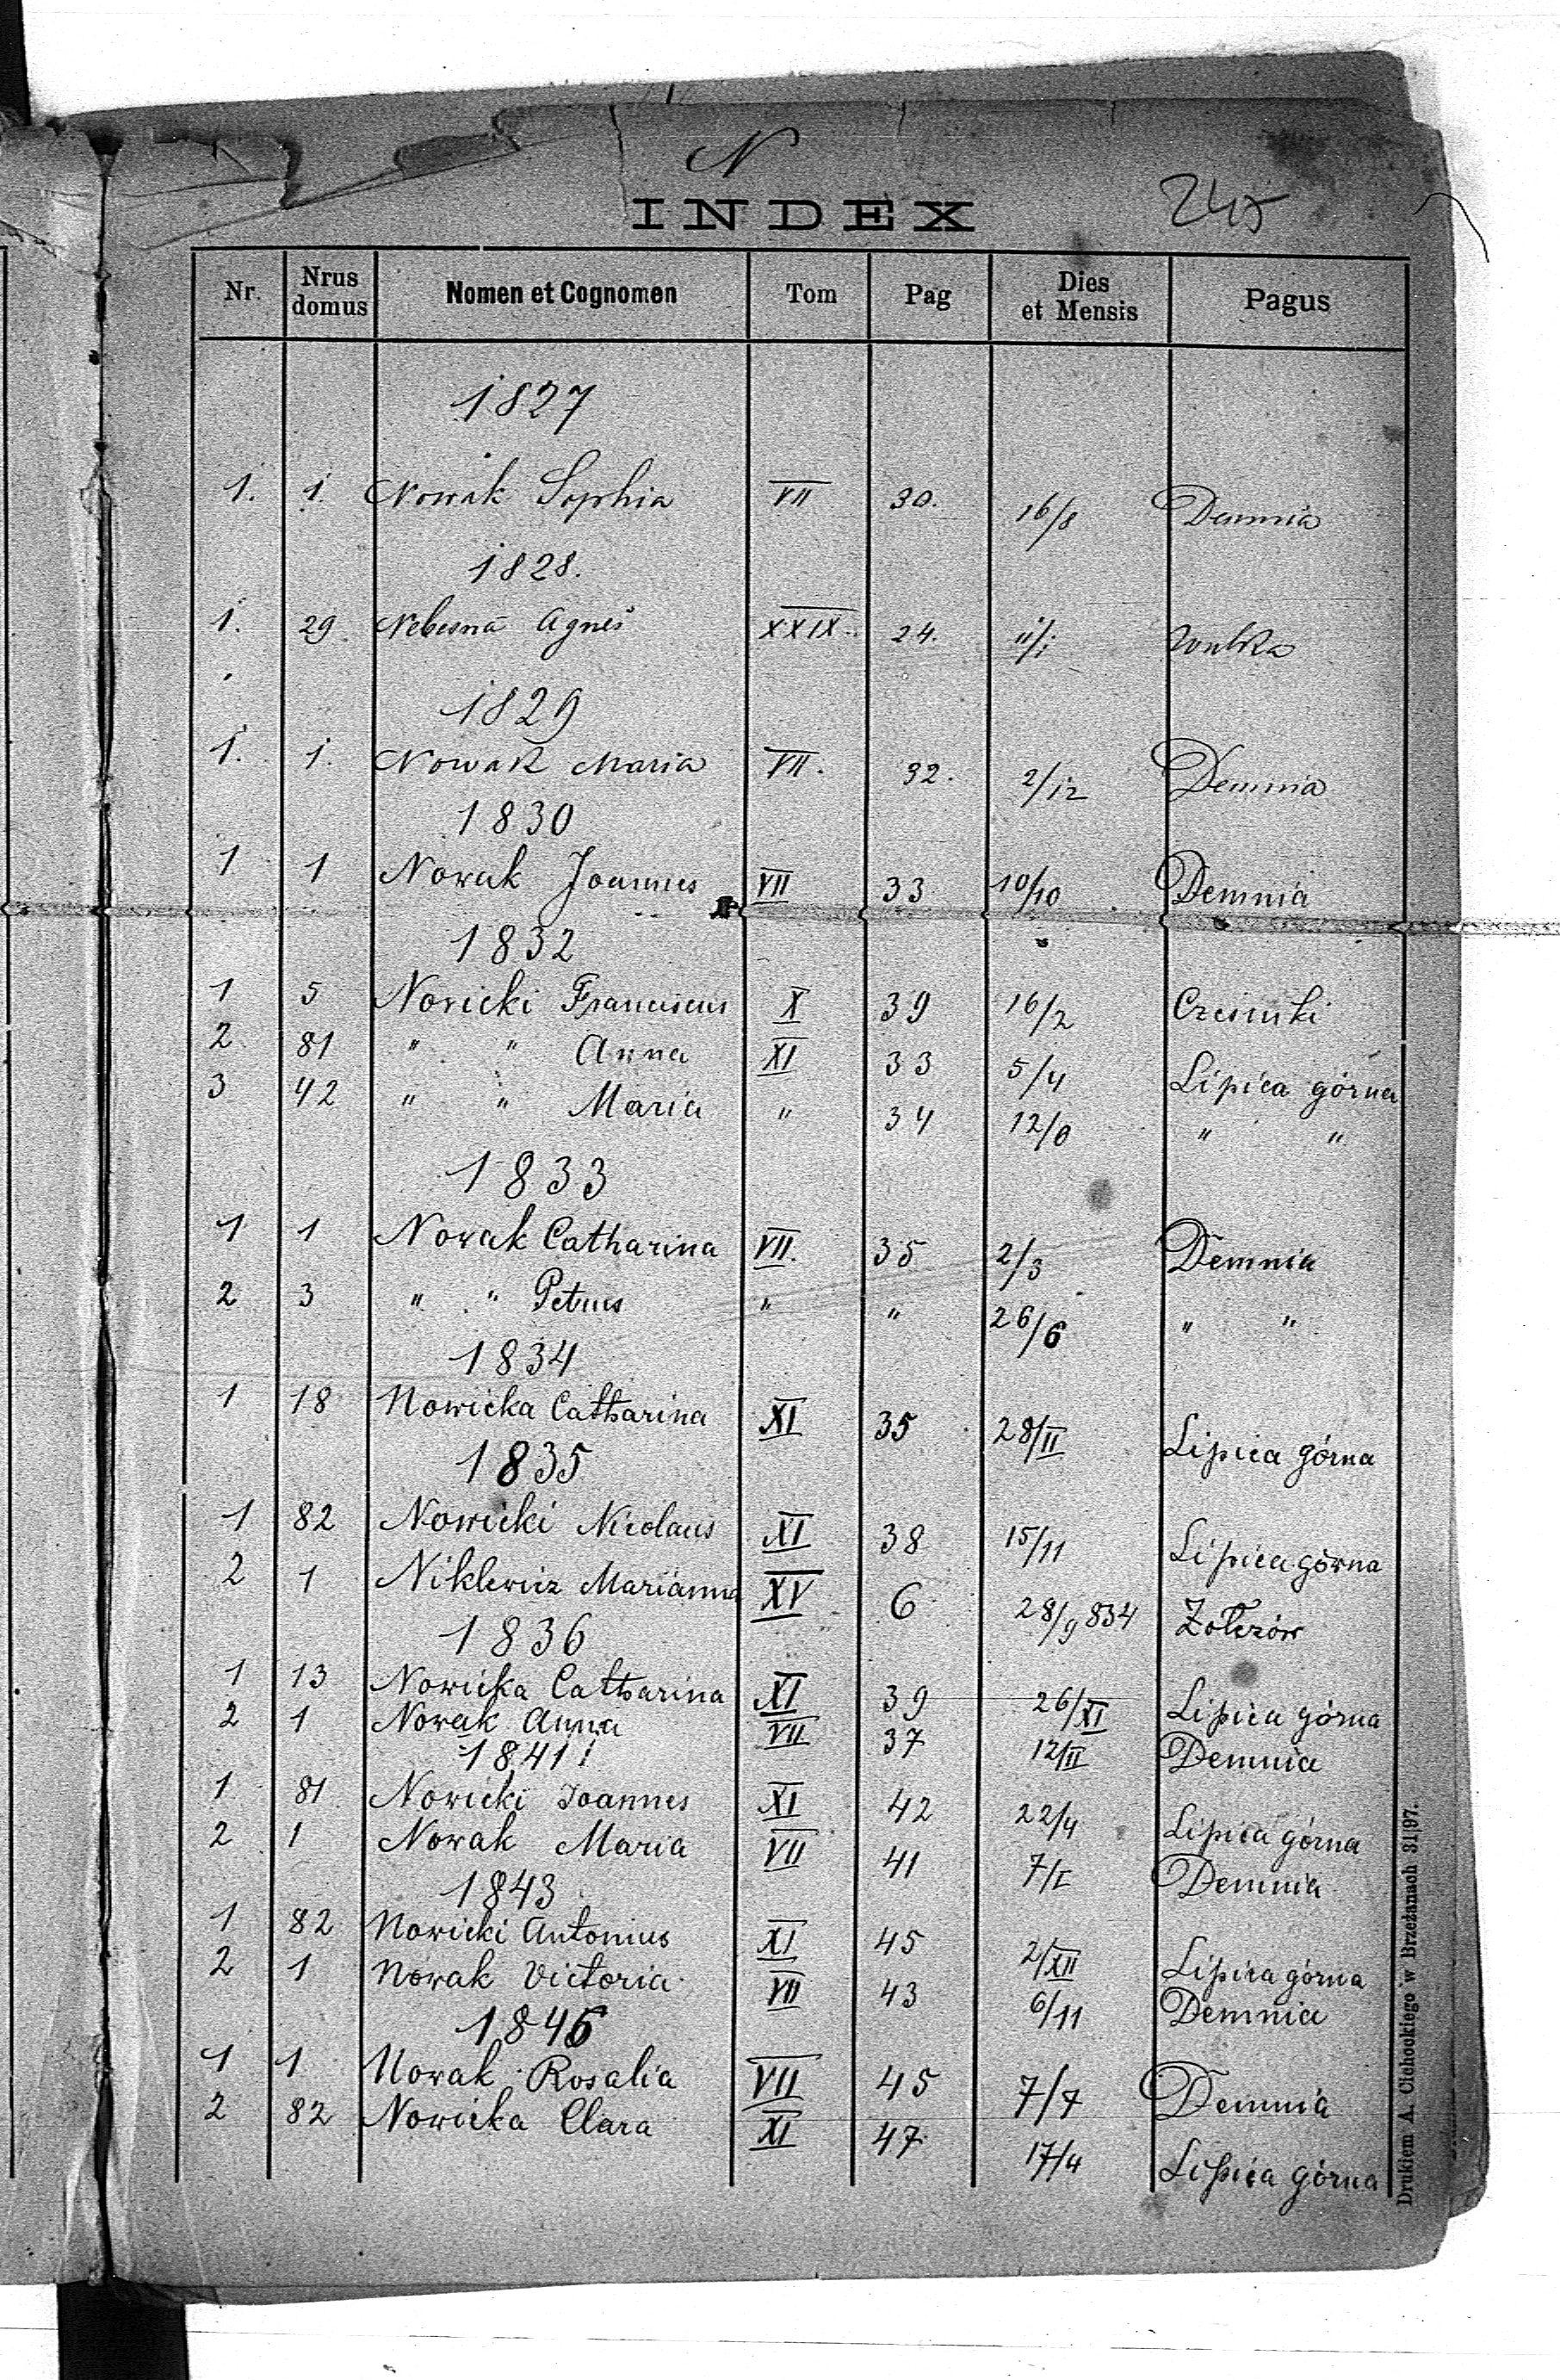 N
INDEX
245
Nr. Nrus domus Nomen et Cognomen Tom Pag Dies et Mensis Pagus
1827
1. 1. Nowak Sophia VII 30. 16/8 Demnia
1828.
1. 29 Nebesna Agnes XXIX. 24. 11/1 Wulka
1829
1. 1. Nowak Maria VII. 32. 2/12 Demnia
1830
1 1 Nowak Joannes VII 33 10/10 Demnia
1832
1 5 Nowicki Franciscus X 39 16/2 Czesniki
2 81 " " Anna XI 33 5/4 Lipica górna
3 42 " " Maria " 34 " "
1833
1 1 Nowak Catharina VII. 35 2/3 Demnia
2 3 " " Petrus " " 26/6 " "
1834
1 18 Nowicka Catharina XI 35 28/II Lipica górna
1835
1 82 Nowicki Nicolaus XI 38 15/11 Lipica górna
2 1 Niklewicz Marianna XV 6 28/9 834 Żołczów
1836
1 13 Nowicka Catharina XI 39 26/XI Lipica górna
2 1 Nowak Anna VII 37 12/II Demnia
1841
1 81 Nowicki Joannes XI 42 22/4 Lipica górna
2 1 Nowak Maria VII 41 7/I Demnia
1843
1 82 Nowicki Antonius XI 45 2/XII Lipica górna
2 1 Nowak Victoria VII 43 6/11 Demnia
1846
1 1 Nowak Rosalia VII 45 7/7 Demnia
2 82 Nowicka Clara XI 47 17/4 Lipica górna
Drukiem A. Cichockiego w Brzeżanach 31|97.